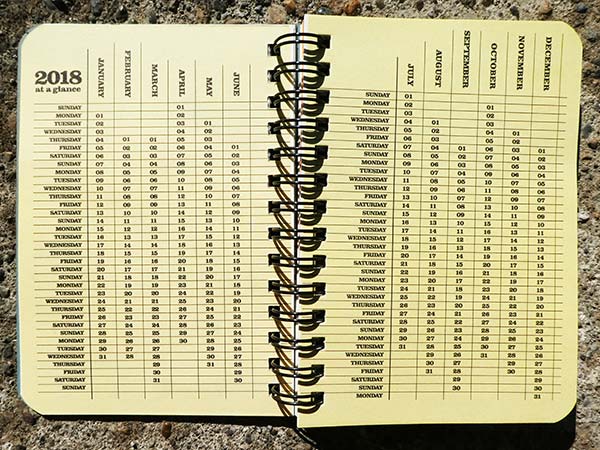 2018
at a glance
JANUARY FEBRUARY MARCH APRIL MAY JUNE
SUNDAY 01
MONDAY 01 02
TUESDAY 02 03 01
WEDNESDAY 03 04 02
THURSDAY 04 01 01 05 03
FRIDAY 05 02 02 06 04 01
SATURDAY 06 03 03 07 05 02
SUNDAY 07 04 04 08 06 03
MONDAY 08 05 05 09 07 04
TUESDAY 09 06 06 10 08 05
WEDNESDAY 10 07 07 11 09 06
THURSDAY 11 08 08 12 10 07
FRIDAY 12 09 09 13 11 08
SATURDAY 13 10 10 14 12 09
SUNDAY 14 11 11 15 13 10
MONDAY 15 12 12 16 14 11
TUESDAY 16 13 13 17 15 12
WEDNESDAY 17 14 14 18 16 13
THURSDAY 18 15 15 19 17 14
FRIDAY 19 16 16 20 18 15
SATURDAY 20 17 17 21 19 16
SUNDAY 21 18 18 22 20 17
MONDAY 22 19 19 23 21 18
TUESDAY 23 20 20 24 22 19
WEDNESDAY 24 21 21 25 23 20
THURSDAY 25 22 22 26 24 21
FRIDAY 26 23 23 27 25 22
SATURDAY 27 24 24 28 26 23
SUNDAY 28 25 25 29 27 24
MONDAY 29 26 26 30 28 25
TUESDAY 30 27 27 29 26
WEDNESDAY 31 28 28 30 27
THURSDAY 29 31 28
FRIDAY 30 29
SATURDAY 31 30
SUNDAY
JULY AUGUST SEPTEMBER OCTOBER NOVEMBER DECEMBER
SUNDAY 01
MONDAY 02 01
TUESDAY 03 02
WEDNESDAY 04 01 03
THURSDAY 05 02 04 01
FRIDAY 06 03 05 02
SATURDAY 07 04 01 06 03 01
SUNDAY 08 05 02 07 04 02
MONDAY 09 06 03 08 05 03
TUESDAY 10 07 04 09 06 04
WEDNESDAY 11 08 05 10 07 05
THURSDAY 12 09 06 11 08 06
FRIDAY 13 10 07 12 09 07
SATURDAY 14 11 08 13 10 08
SUNDAY 15 12 09 14 11 09
MONDAY 16 13 10 15 12 10
TUESDAY 17 14 11 16 13 11
WEDNESDAY 18 15 12 17 14 12
THURSDAY 19 16 13 18 15 13
FRIDAY 20 17 14 19 16 14
SATURDAY 21 18 15 20 17 15
SUNDAY 22 19 16 21 18 16
MONDAY 23 20 17 22 19 17
TUESDAY 24 21 18 23 20 18
WEDNESDAY 25 22 19 24 21 19
THURSDAY 26 23 20 25 22 20
FRIDAY 27 24 21 26 23 21
SATURDAY 28 25 22 27 24 22
SUNDAY 29 26 23 28 25 23
MONDAY 30 27 24 29 26 24
TUESDAY 31 28 25 30 27 25
WEDNESDAY 29 26 31 28 26
THURSDAY 30 27 29 27
FRIDAY 31 28 30 28
SATURDAY 29 29
SUNDAY 30 30
MONDAY 31